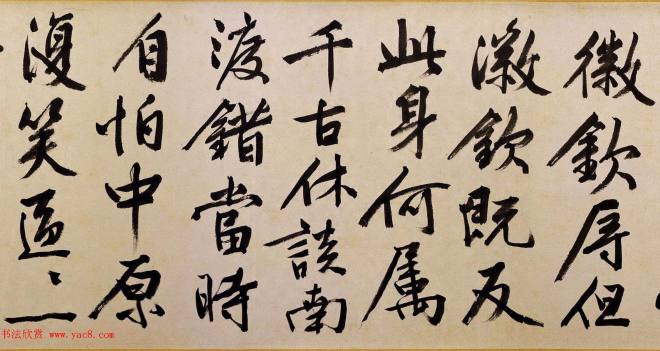 徽欽辱但
徽欽既反
此身何属
千古休談南
渡錯當時
自怕中原
復笑區〻一
书法欣赏 www.yac8.com